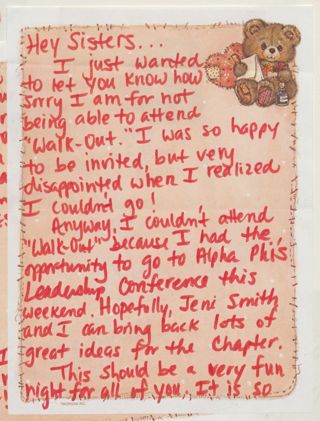 Hey Sisters...
I just wanted
to let you know how
sorry I am for not
being able to attend
"Walk-Out." I was so happy
to be invited, but very
disappointed when I realized
I couldn't go!
Anyway, I couldn't attend
"Walk-Out" because I had the
opportunity to go to Alpha Phi's
Leadership Conference this
weekend. Hopefully, Jeni Smith
and I can bring back lots of
great ideas for the Chapter.
This should be a very fun
night for all of you. It is so